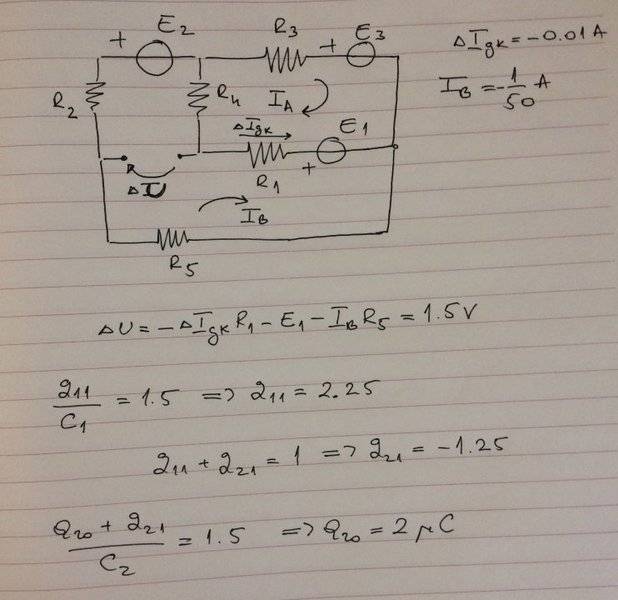 + E2 R3 + E3 ΔIgk = -0.01 A
R2 R4 IA IB = -1/50 A
ΔIgk E1
ΔU R1 +
IB
R5
ΔU = -ΔIgk R1 - E1 - IB R5 = 1.5 V
q11/C1 = 1.5 => q11 = 2.25
q11 + q21 = 1 => q21 = -1.25
(Q20 + q21)/C2 = 1.5 => Q20 = 2 μC